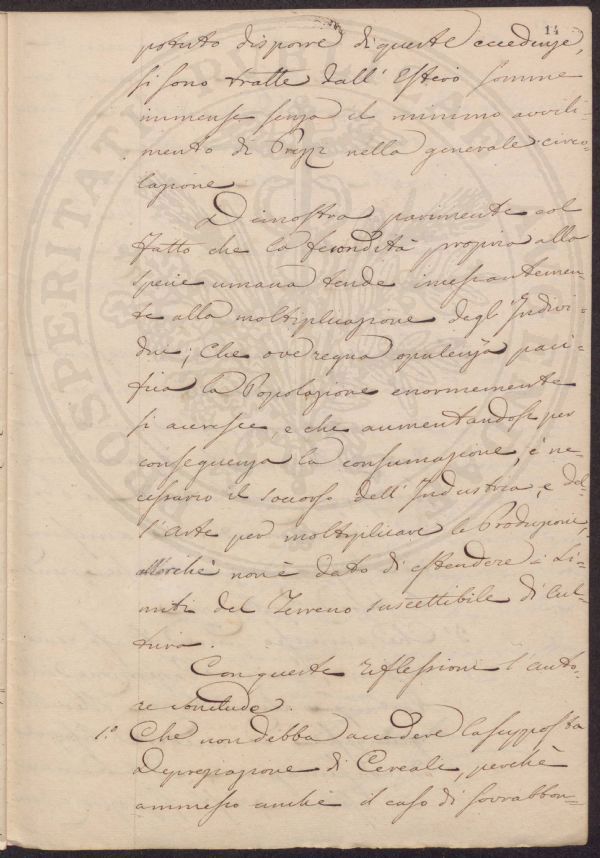 14
potuto disporre di queste eccedenze,
si sono tratte dall'Estero somme
immense senza il minimo avvili-
mento di Prezzi nella generale circo-
lazione
Dimostra parimente col
Fatto che la fecondità propria alla
specie umana tende incessantemen-
te alla moltiplicazione degl'Indivi-
dui; Che ove regna opulenza paci-
fica la Popolazione enormemente
si accresce, e che aumentandosi per
conseguenza la consumazione, è ne-
cessario il soccorso dell'Industria, e del-
l'Arte per moltiplicare le Produzioni,
allorchè non è dato di estendere i Li-
miti del Terreno suscettibile di Cul-
tura.
Con queste riflessioni l'auto-
re conclude.
1.° Che non debba accadere la supposta
Deprezzazione di Cereali, perchè
ammesso anche il caso di sovrabbon-
PROSPERITATI